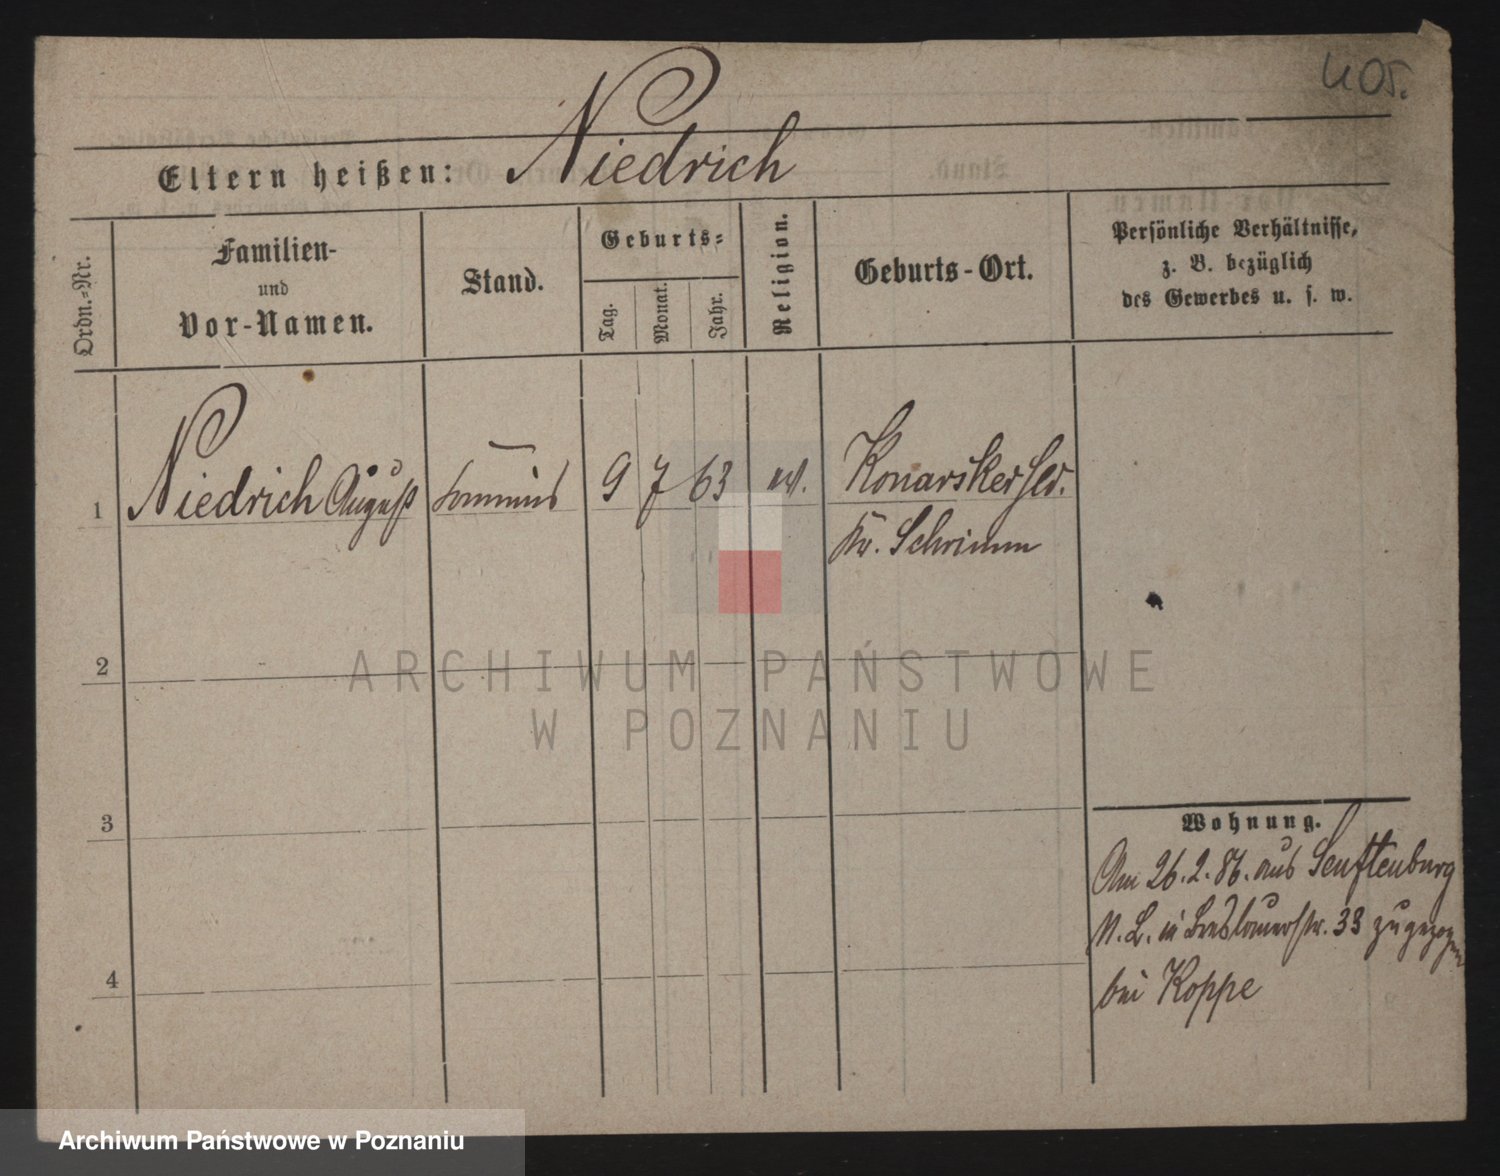 405.
Eltern heißen: Niedrich
Ordn.-Nr.
Familien-
und
Vor-Namen.
Stand.
Geburts-
Tag.
Monat.
Jahr.
Religion.
Geburts-Ort.
Persönliche Verhältnisse,
z. B. bezüglich
des Gewerbes u. s. w.
1 Niedrich August Commis 9 7 63 ev. Konarskerhld.
Kr. Schrimm
2
3
4
Wohnung.
Am 26.2.86. aus Senftenburg
N. L. in Breslauerstr. 33 zugezogen
bei Koppe
ARCHIWUM PAŃSTWOWE
W POZNANIU
Archiwum Państwowe w Poznaniu